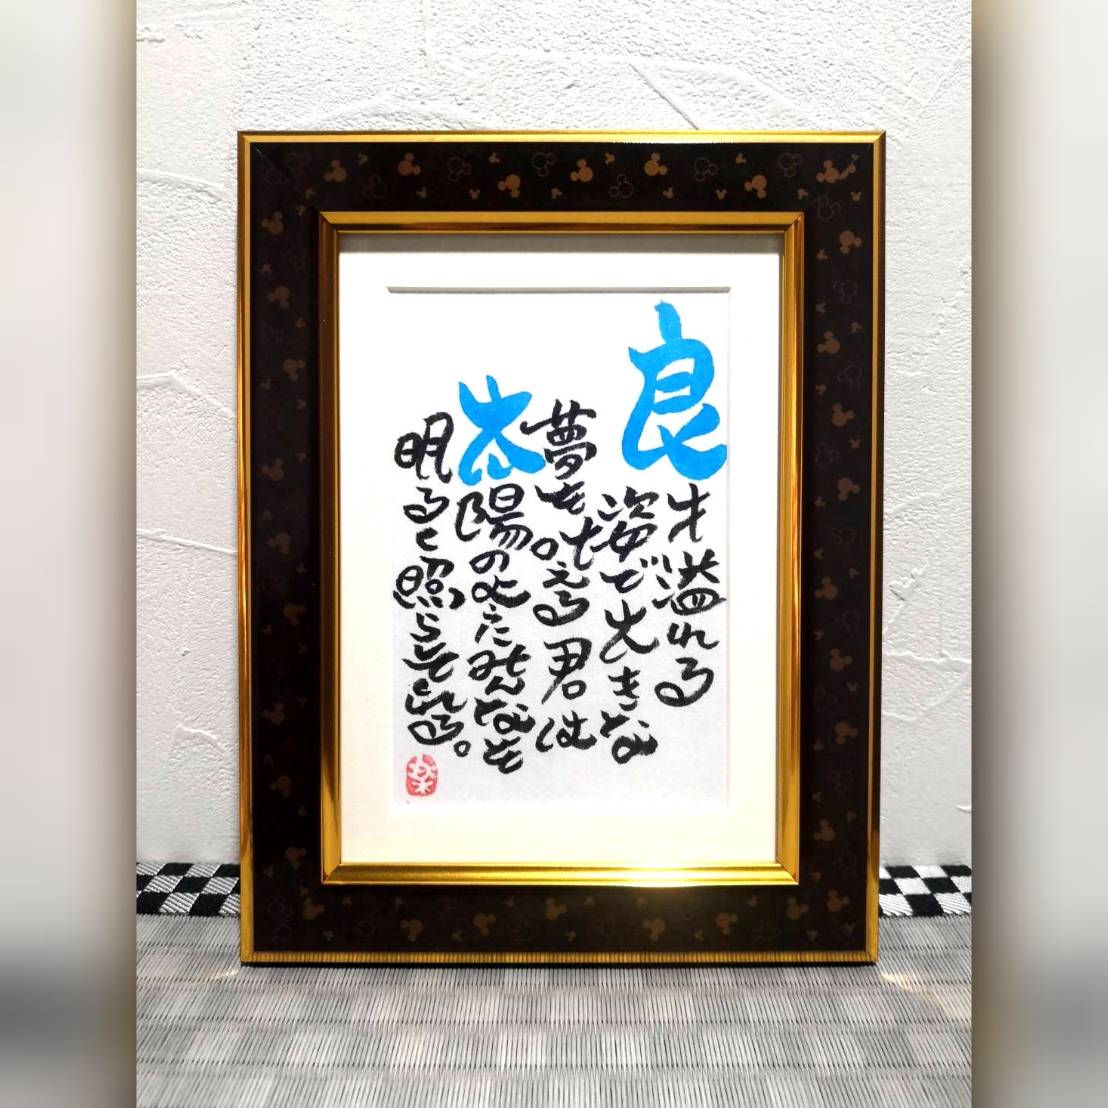 良才溢れる
姿で大きな
夢を叶える君は
太陽のようにみんなを
明るく照らしてくれる。
楽